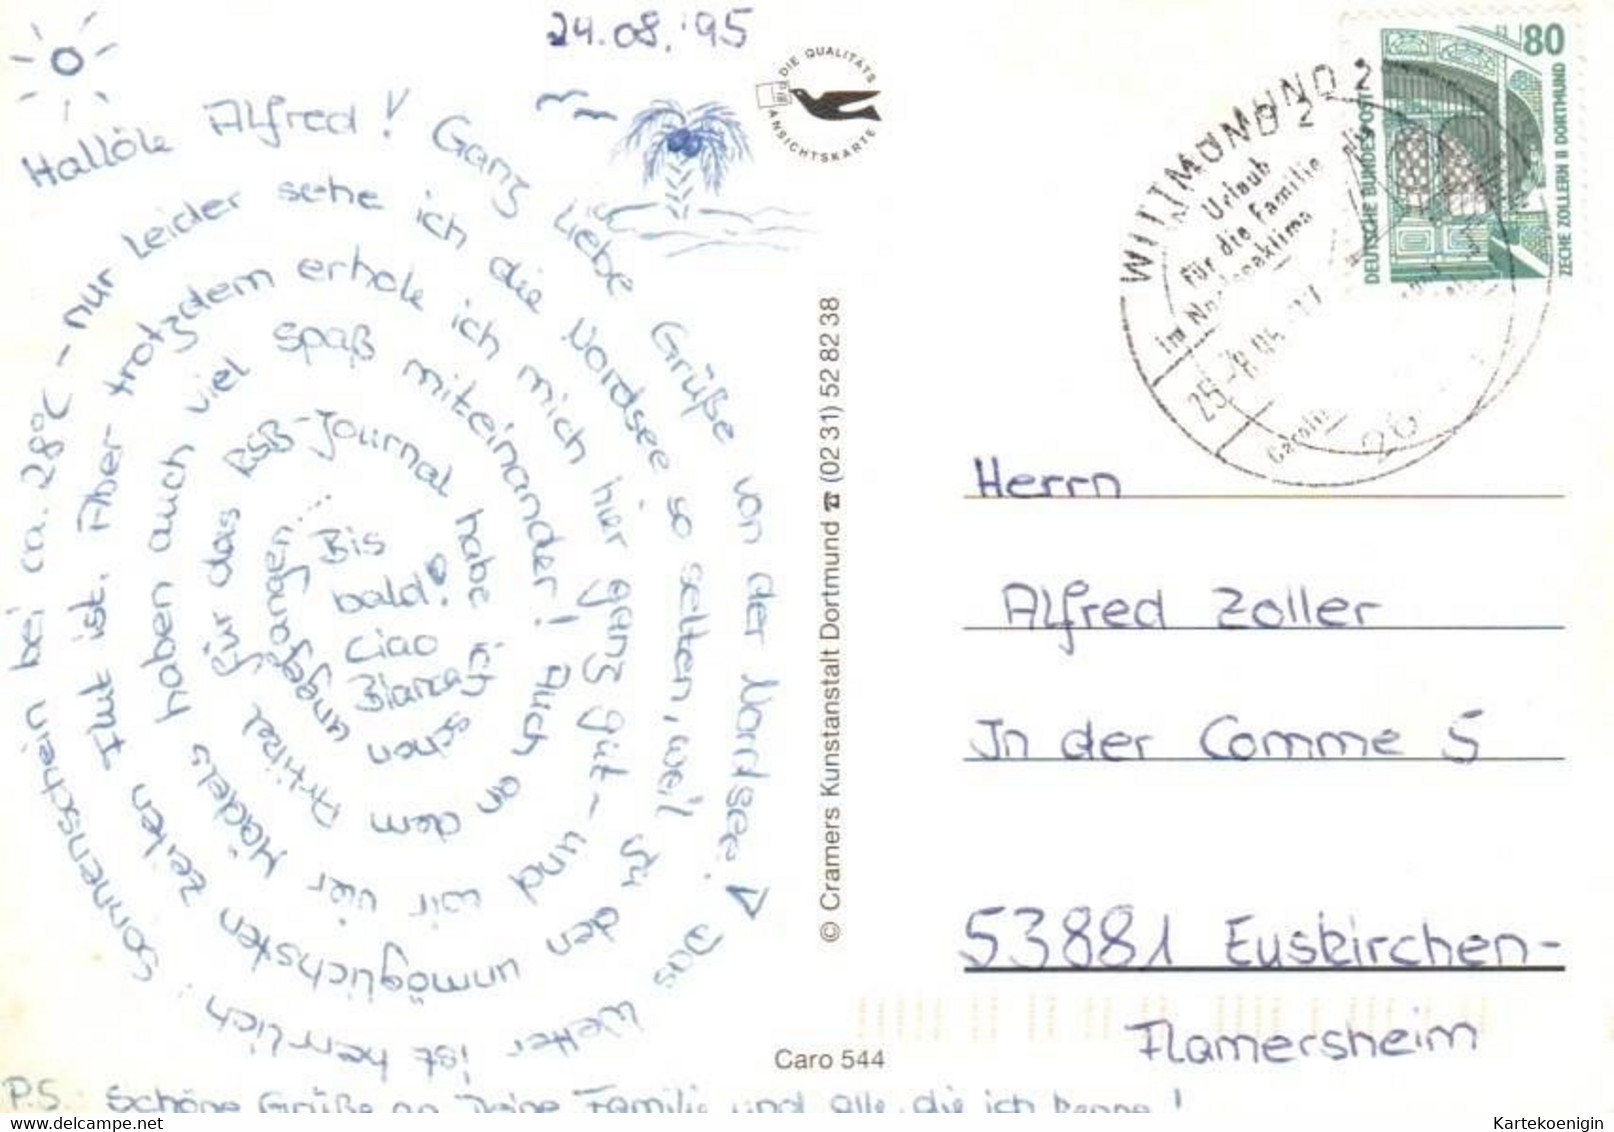 24.08.'95
Hallöle Alfred! Ganz liebe Grüße von der Nordsee! Das Wetter ist herrlich: Sonnenschein bei ca. 28°C - nur leider sehe ich die Nordsee so selten, weil in den unmöglichsten Zeiten Flut ist. Aber trotzdem erhole ich mich hier ganz gut - und wir vier Mädels haben auch viel Spaß miteinander! Auch an dem Artikel für das BSB-Journal habe ich schon angefangen...
Bis
bald!
Ciao
Bianca
P.S. Schöne Grüße an Deine Familie und alle, die ich kenne!
DIE QUALITÄTS
ANSICHTSKARTE
© Cramers Kunstanstalt Dortmund ☎ (02 31) 52 82 38
Caro 544
80
DEUTSCHE BUNDESPOST
ZECHE ZOLLERN II DORTMUND
WITTMUND 2
Urlaub
für die Familie
im Nordseeklima
25.-8.95
Herrn
Alfred Zoller
In der Comme 5
53881 Euskirchen-
Flamersheim
Kartekoenigin